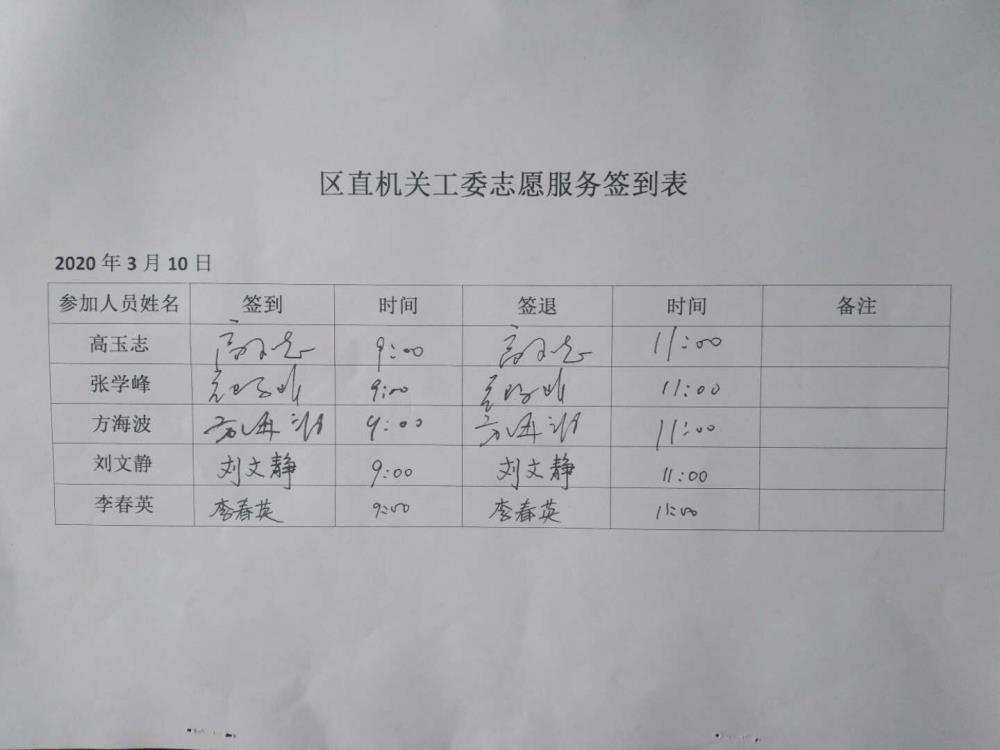 区直机关工委志愿服务签到表
2020 年 3 月 10 日
参加人员姓名 签到 时间 签退 时间 备注
高玉志 高玉志 9:00 高玉志 11:00
张学峰 9:00 11:00
方海波 方海波 9:00 方海波 11:00
刘文静 刘文静 9:00 刘文静 11:00
李春英 李春英 9:00 李春英 11:00